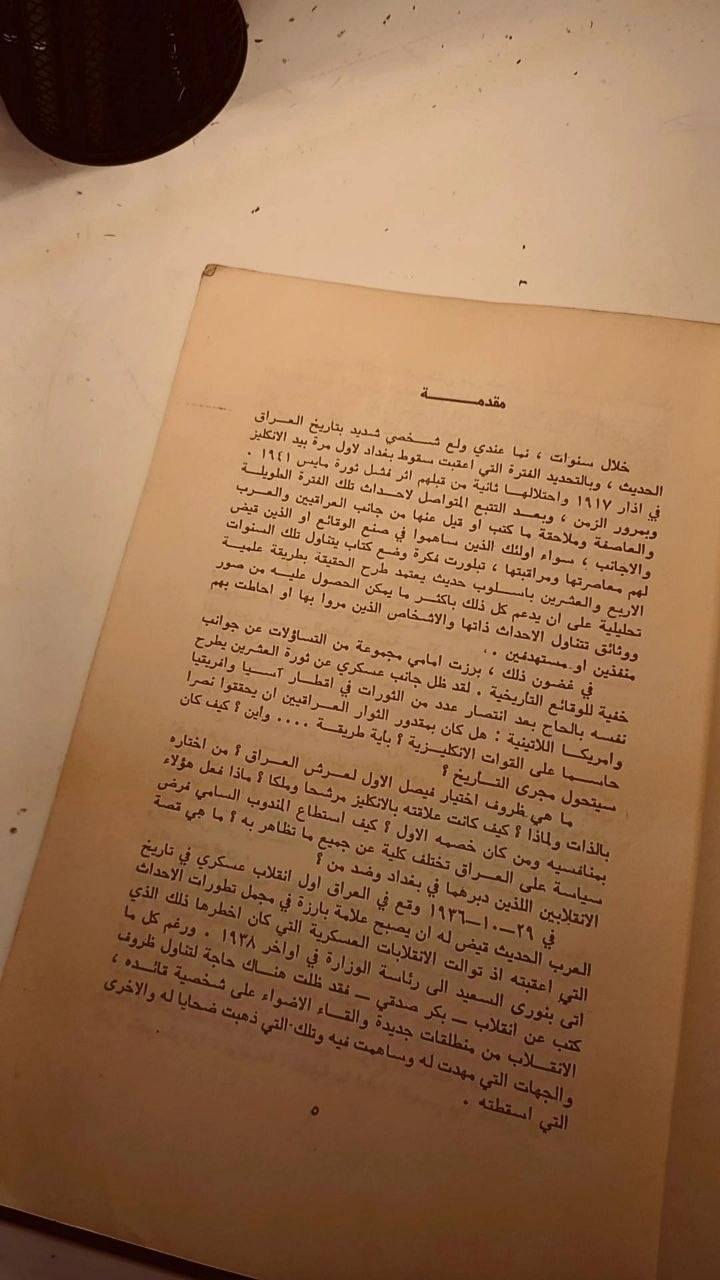 مقدمـــــــــة
خلال سنوات ، نما عندي ولع شــخصي شديد بتاريخ العــراق
الحديث ، وبالتحديد الفترة التي اعقبت سقوط بغداد لاول مرة بيد الانكليز
في اذار ١٩١٧ واحتلالهــا ثانية من قبلهم اثر فشل ثورة مايس ١٩٤١ .
وبمرور الزمن ، وبعــد التتبع المتواصل لاحــداث تلك الفترة الطويلــة
والعاصفة وملاحقة ما كتب او قيل عنها من جانب العراقيين والعــرب
والاجانب ، سواء اولئك الذين ساهموا في صنع الوقائع او الذين قيض
لهم معاصرتها ومراقبتها ، تبلورت فكرة وضع كتاب يتناول تلك السنوات
الاربع والعشرين باســلوب حديث يعتمد طرح الحقيقة بطريقة علميــة
تحليلية على ان يدعم كل ذلك باكثــر ما يمكن الحصول عليــه من صور
ووثائق تتناول الاحداث ذاتها والاشخاص الذين مروا بها او احاطت بهم
منفذين او مستهدفين .
في غضون ذلك ، برزت امامي مجموعة من التساؤلات عن جوانب
خفية للوقائع التاريخية . لقد ظل جانب عسكري عن ثورة العشرين يطرح
نفسه بالحاح بعد انتصار عدد من الثورات في اقطــار آســيا وافريقيا
وامريكــا اللاتينية : هل كان بمقدور الثوار العــراقيين ان يحققوا نصرا
حاســما على القوات الانكليــزية ؟ باية طريقــة .... واين ؟ كيف كان
سيتحول مجرى التــاريخ ؟
ما هي ظروف اختيار فيصل الاول لعــرش العــراق ؟ من اختاره
بالذات ولماذا ؟ كيف كانت علاقته بالانكليز مرشحا وملكا ؟ ماذا فعل هؤلاء
بمنافسيه ومن كان خصمه الاول ؟ كيف استطاع المندوب السامي فرض
سياسة على العــراق تختلف كلية عن جميع ما تظاهر به ؟ ما هي قصة
الانقلابين اللذين دبرهما في بغداد وضد من ؟
في ٢٩—١٠—١٩٣٦ وقع في العراق اول انقلاب عسكري في تاريخ
العرب الحديث قيض له ان يصبح علامة بارزة في مجمل تطورات الاحداث
التي اعقبته اذ توالت الانقلابات العسكرية التي كان اخطرها ذلك الذي
اتى بنوري السعيد الى رئاسة الوزارة في اواخر ١٩٣٨ . ورغم كل ما
كتب عن انقلاب — بكر صدقي — فقد ظلت هنــاك حاجة لتناول ظروف
الانقــلاب من منطلقات جديدة والقــاء الاضواء على شــخصية قائــده ،
والجهات التي مهدت له وساهمت فيه وتلك التي ذهبت ضحايا له والاخرى
التي اسقطته .
٥